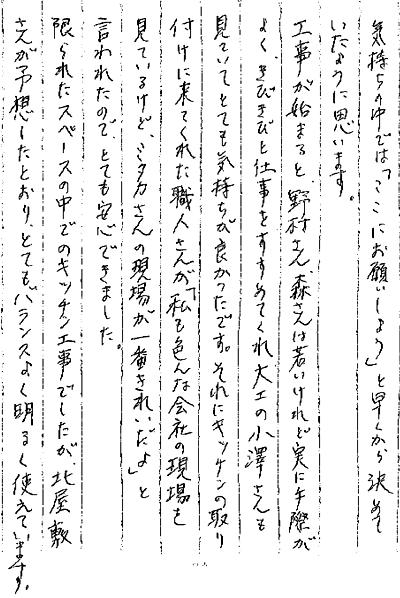 気持ちの中では「ここにお願いしよう」と早くから決めて
いたように思います。
工事が始まると野村さん、森さんは若いけれど実に手際が
よく、きびきびと仕事をすすめてくれ大工の小澤さんも
見ていてとても気持ちが良かったです。それにキッチンの取り
付けに来てくれた職人さんが「私も色んな会社の現場を
見ているけど、ミタカさんの現場が一番きれいだよ」と
言われたので、とても安心できました。
限られたスペースの中でのキッチン工事でしたが、北屋敷
さんが予想したとおり、とてもバランスよく明るく使えています。